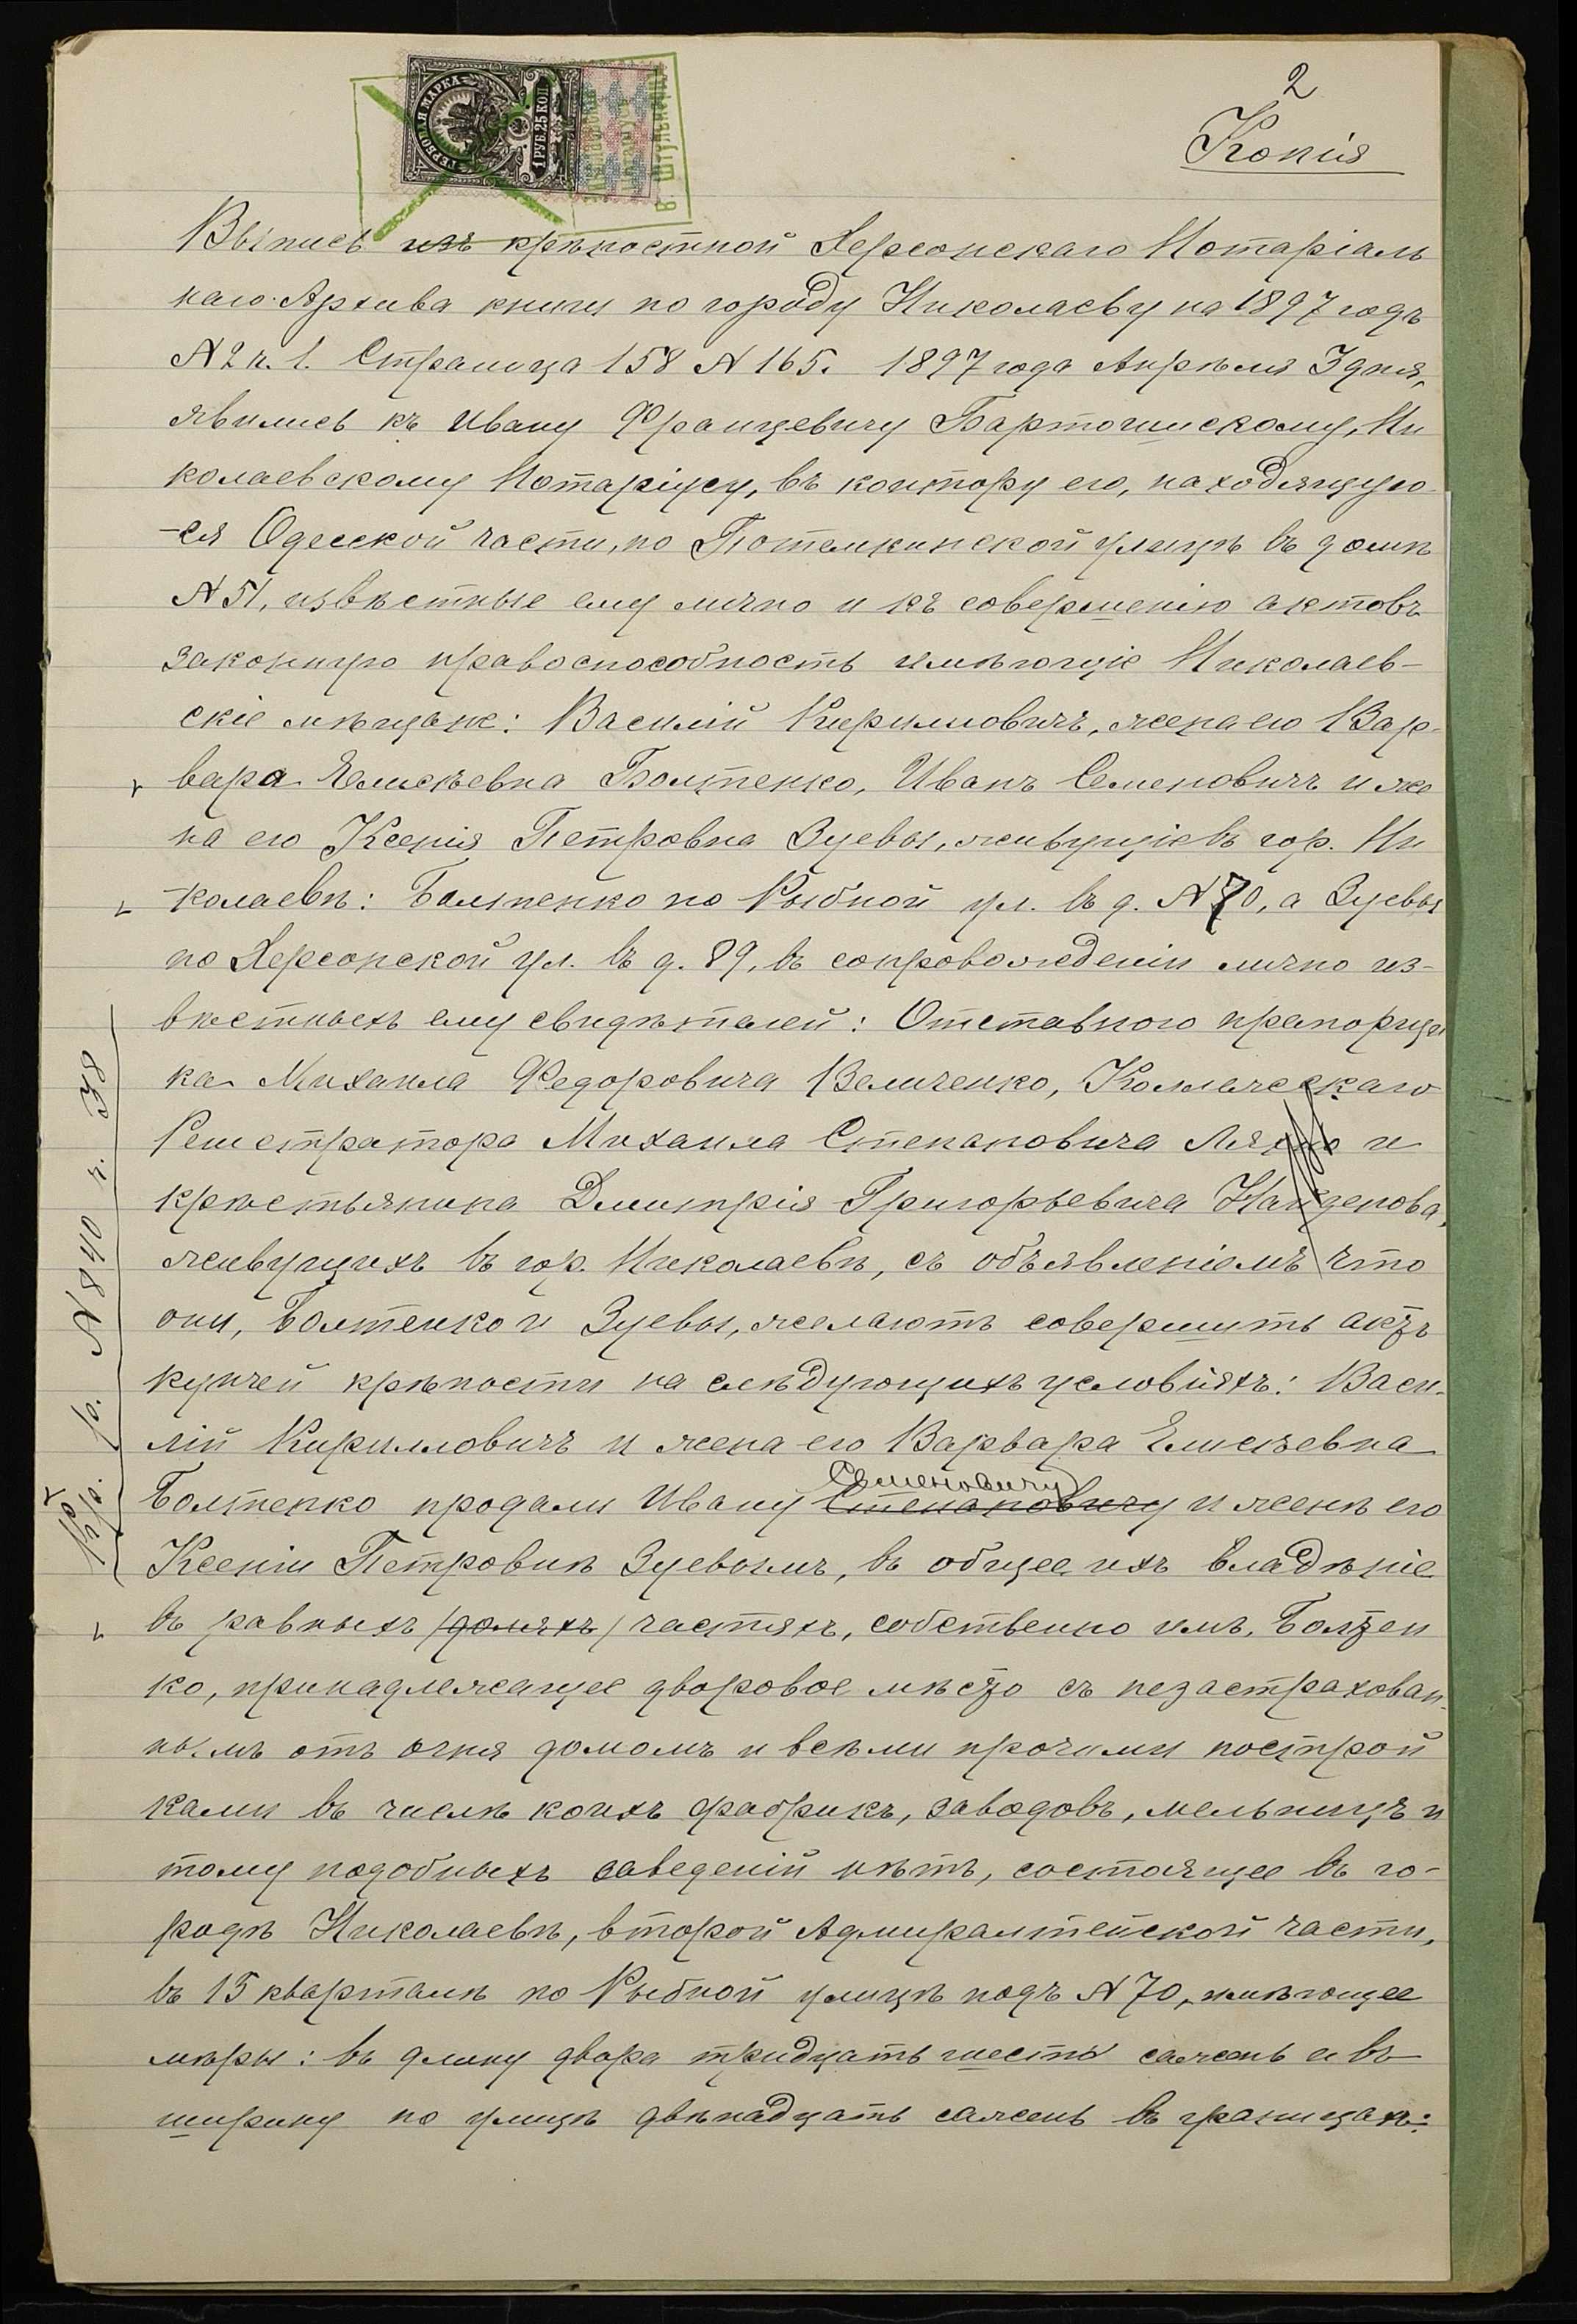 2
Копія
ГЕРБОВАЯ МАРКА
1 РУБ. 25 КОП
Выпись изъ крѣпостной Херсонскаго Нотаріаль
наго Архива книги по городу Николаеву на 1897 годъ
№ 2 ч. 1. Страница 158 № 165. 1897 года Апрѣля 3 дня,
явились къ Ивану Францевичу Бартошинскому, Ни
колаевскому Нотаріусу, въ контору его, находящуюся
-ся Одесской части, по Потемкинской улицѣ въ домѣ
№ 51, извѣстные ему лично и къ совершенію актовъ
законную правоспособность имѣющіе Николаев-
скіе мѣщане: Василій Кириловичъ, жена его Вар-
вара Елисѣевна Болтенко, Иванъ Семеновичъ и же
на его Ксенія Петровна Зуевы, живущіе въ гор. Ни
-колаевѣ: Болтенко по Рыбной ул. въ д. № 70, а Зуевы
по Херсонской ул. въ д. 89, въ сопровожденіи лично из-
вѣстныхъ ему свидѣтелей: Отставного прапорщи
ка Михаила Федоровича Величенко, Коллежскаго
Регистратора Михаила Степановича и
крестьянина Дмитрія Григорьевича
живущихъ въ гор. Николаевѣ, съ объявленіемъ что
они, Болтенко и Зуевы, желаютъ совершить актъ
купчей крѣпости на слѣдующихъ условіяхъ: Васи-
лій Кирилловичъ и жена его Варвара Елисѣевна
Семеновичу
Болтенко продали Ивану Степановичу и женѣ его
Ксеніи Петровнѣ Зуевымъ, въ общее ихъ владѣніе
въ равныхъ /доляхъ/ частяхъ, собственно имъ, Болтен
ко, принадлежащее дворовое мѣсто съ незастрахован-
нымъ отъ огня домомъ и всѣми прочими построй
ками въ числѣ коихъ фабрикъ, заводовъ, мельницъ и
тому подобныхъ заведеній нѣтъ, состоящее въ го-
родѣ Николаевѣ, второй Адмиралтейской части,
въ 15 кварталѣ по Рыбной улицѣ подъ № 70, имѣющее
мѣры: въ длину двора тридцать шесть сажень а въ
ширину по улицѣ двѣнадцать сажень въ границахъ:
Кр. р. № 840 ч. 38